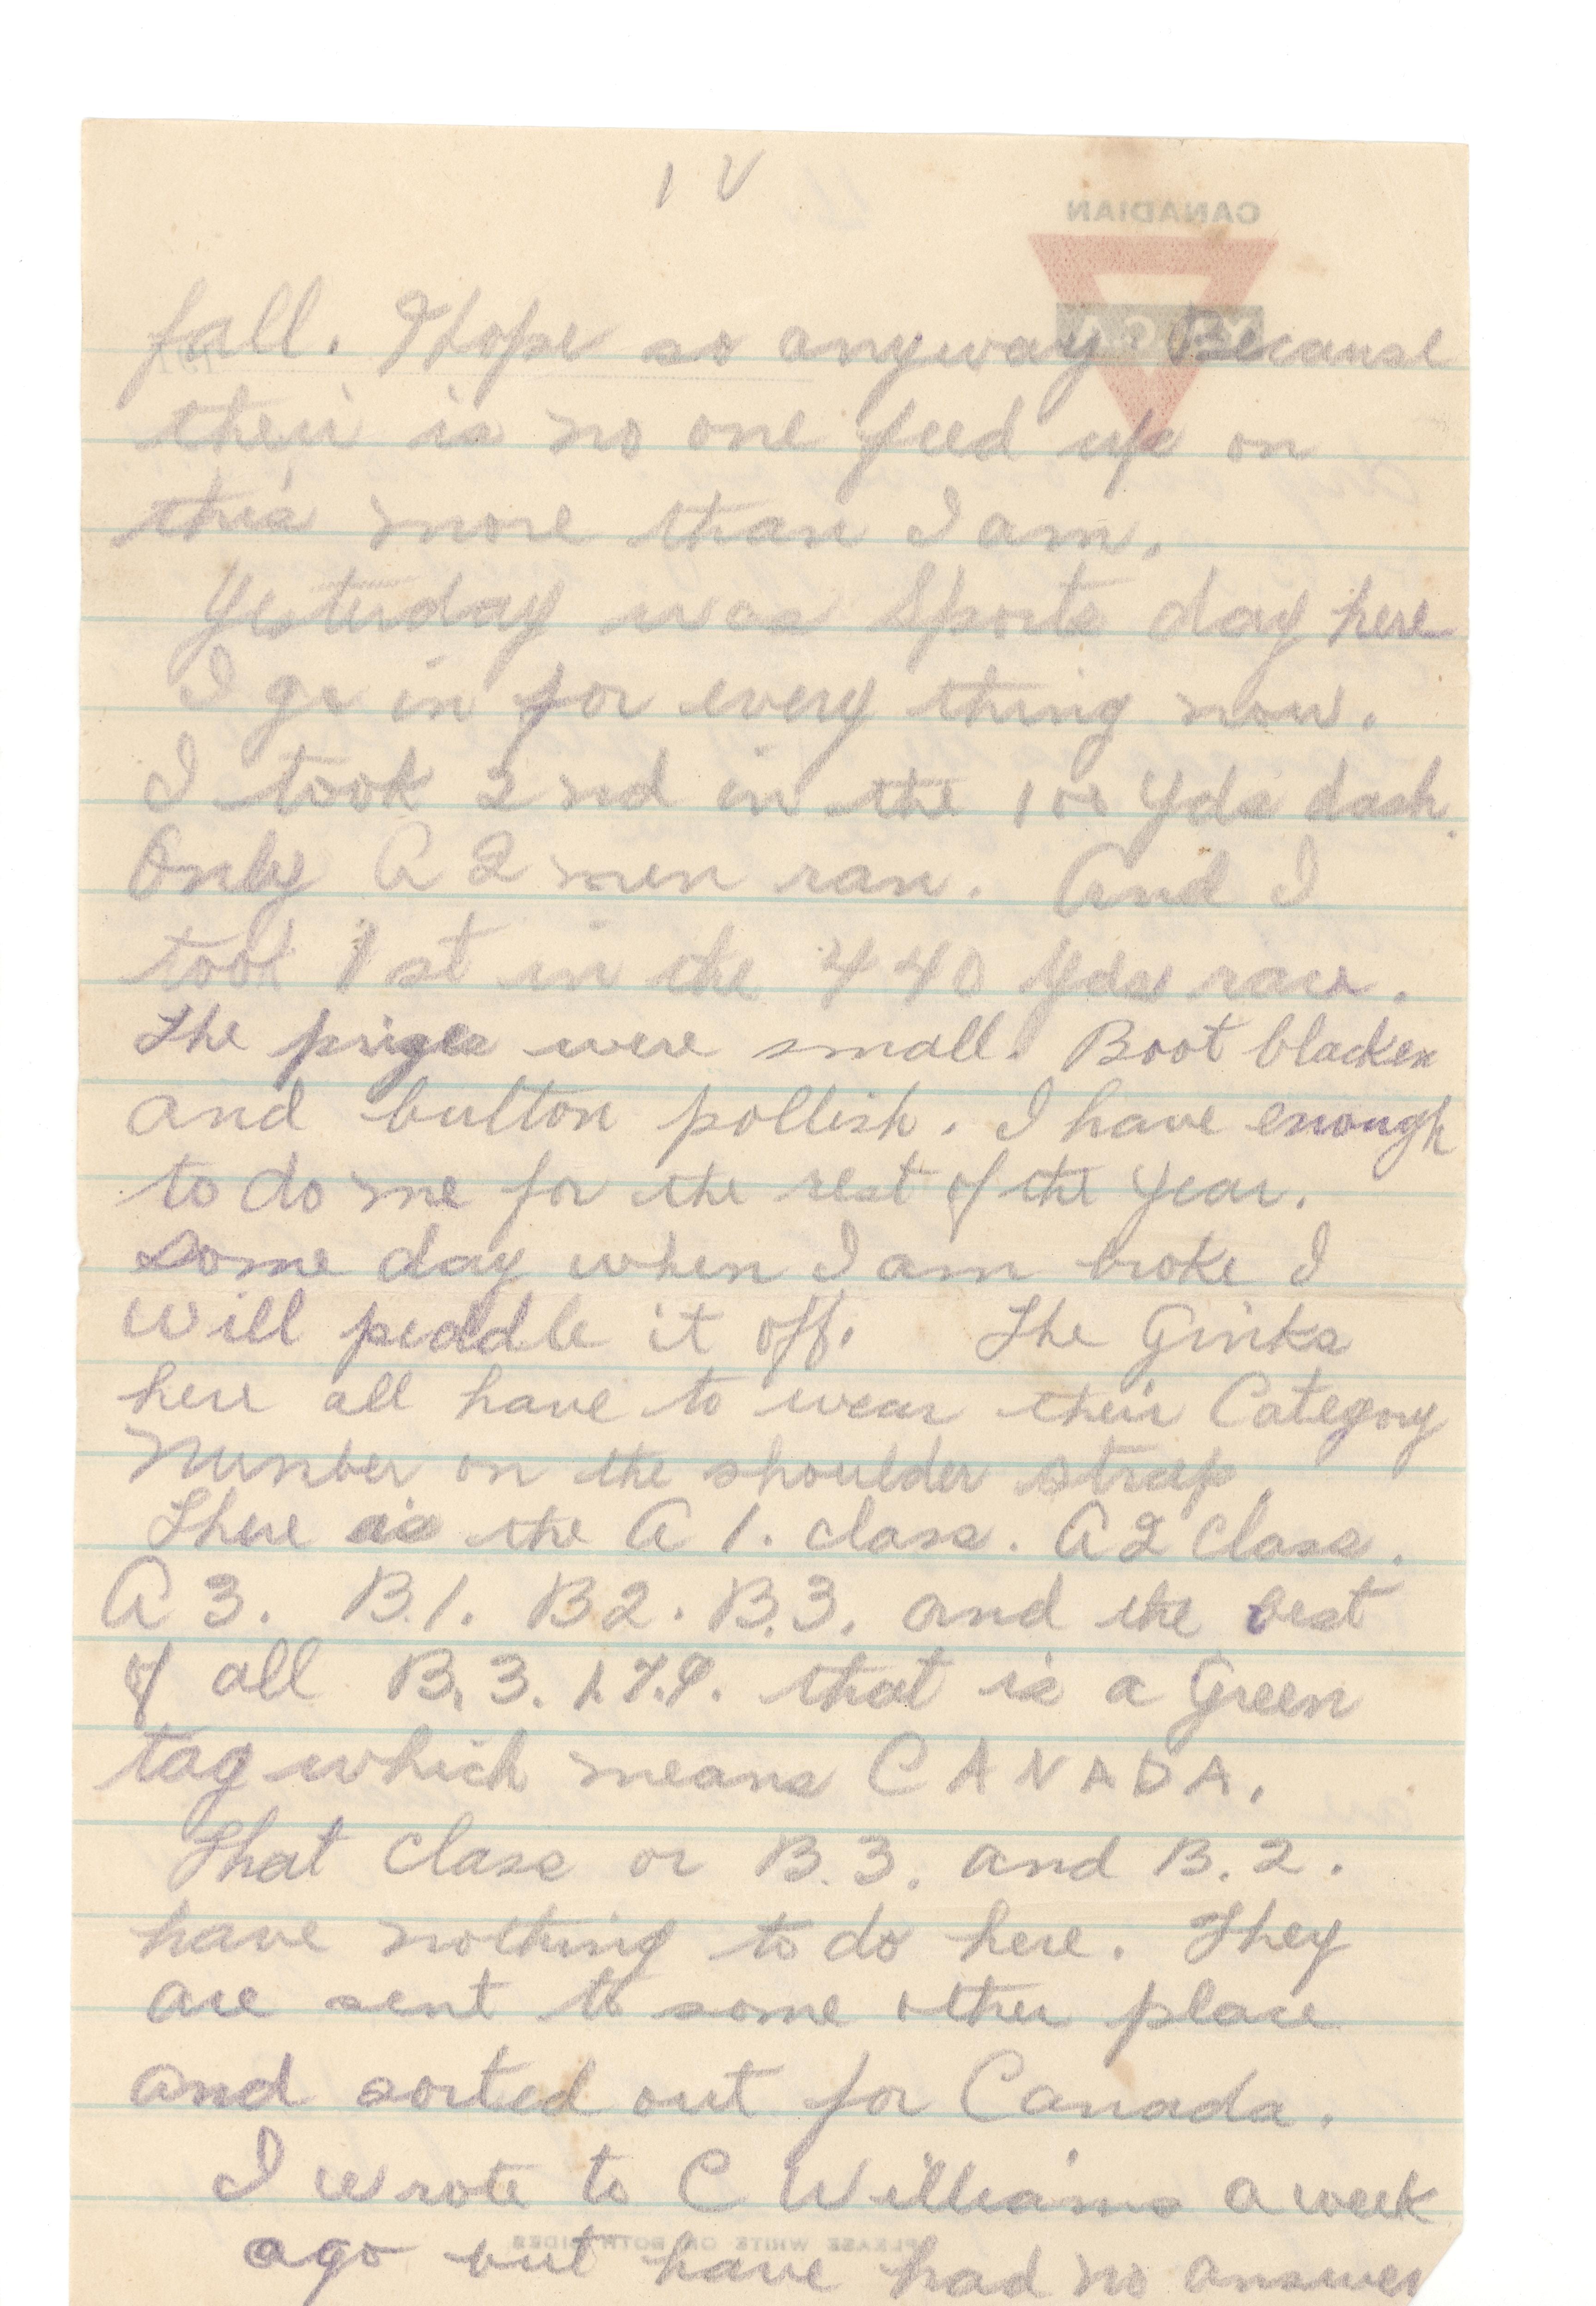 IV
CANADIAN
YMCA
fall. I Hope so anyway Because
their is no one feed up on
this more than I am.
Yesterday was Sports day here
I go in for every thing now.
I took 2nd in the 100 Yds dash.
Only A 2 men ran. And I
took 1st in the 440 Yds race.
The prizes were small. Boot blacken
and button pollish. I have enough
to do me for the rest of the year.
Some day when I am broke I
will peddle it off. The Ginks
here all have to wear their Category
Number on the shoulder strap
There is the A 1. class. A2 class.
A 3. B.1. B2. B.3. and the best
of all B.3. that is a Green
tag which means CANADA.
That class or B.3. and B.2.
have nothing to do here. They
are sent to some other place
and sorted out for Canada.
I wrote to C Williams a week
ago but have had no answer
PLEASE WRITE ON BOTH SIDES